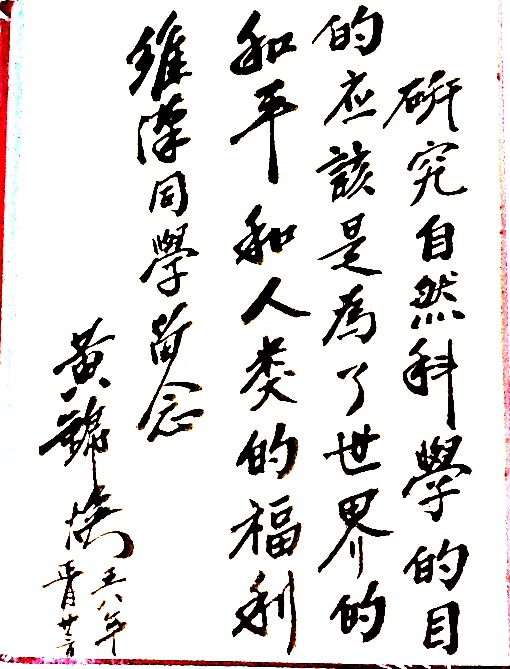 研究自然科學的目
的应該是為了世界的
和平和人类的福利
維漢同學留念
黃錦煥
五八年
元月廿二日